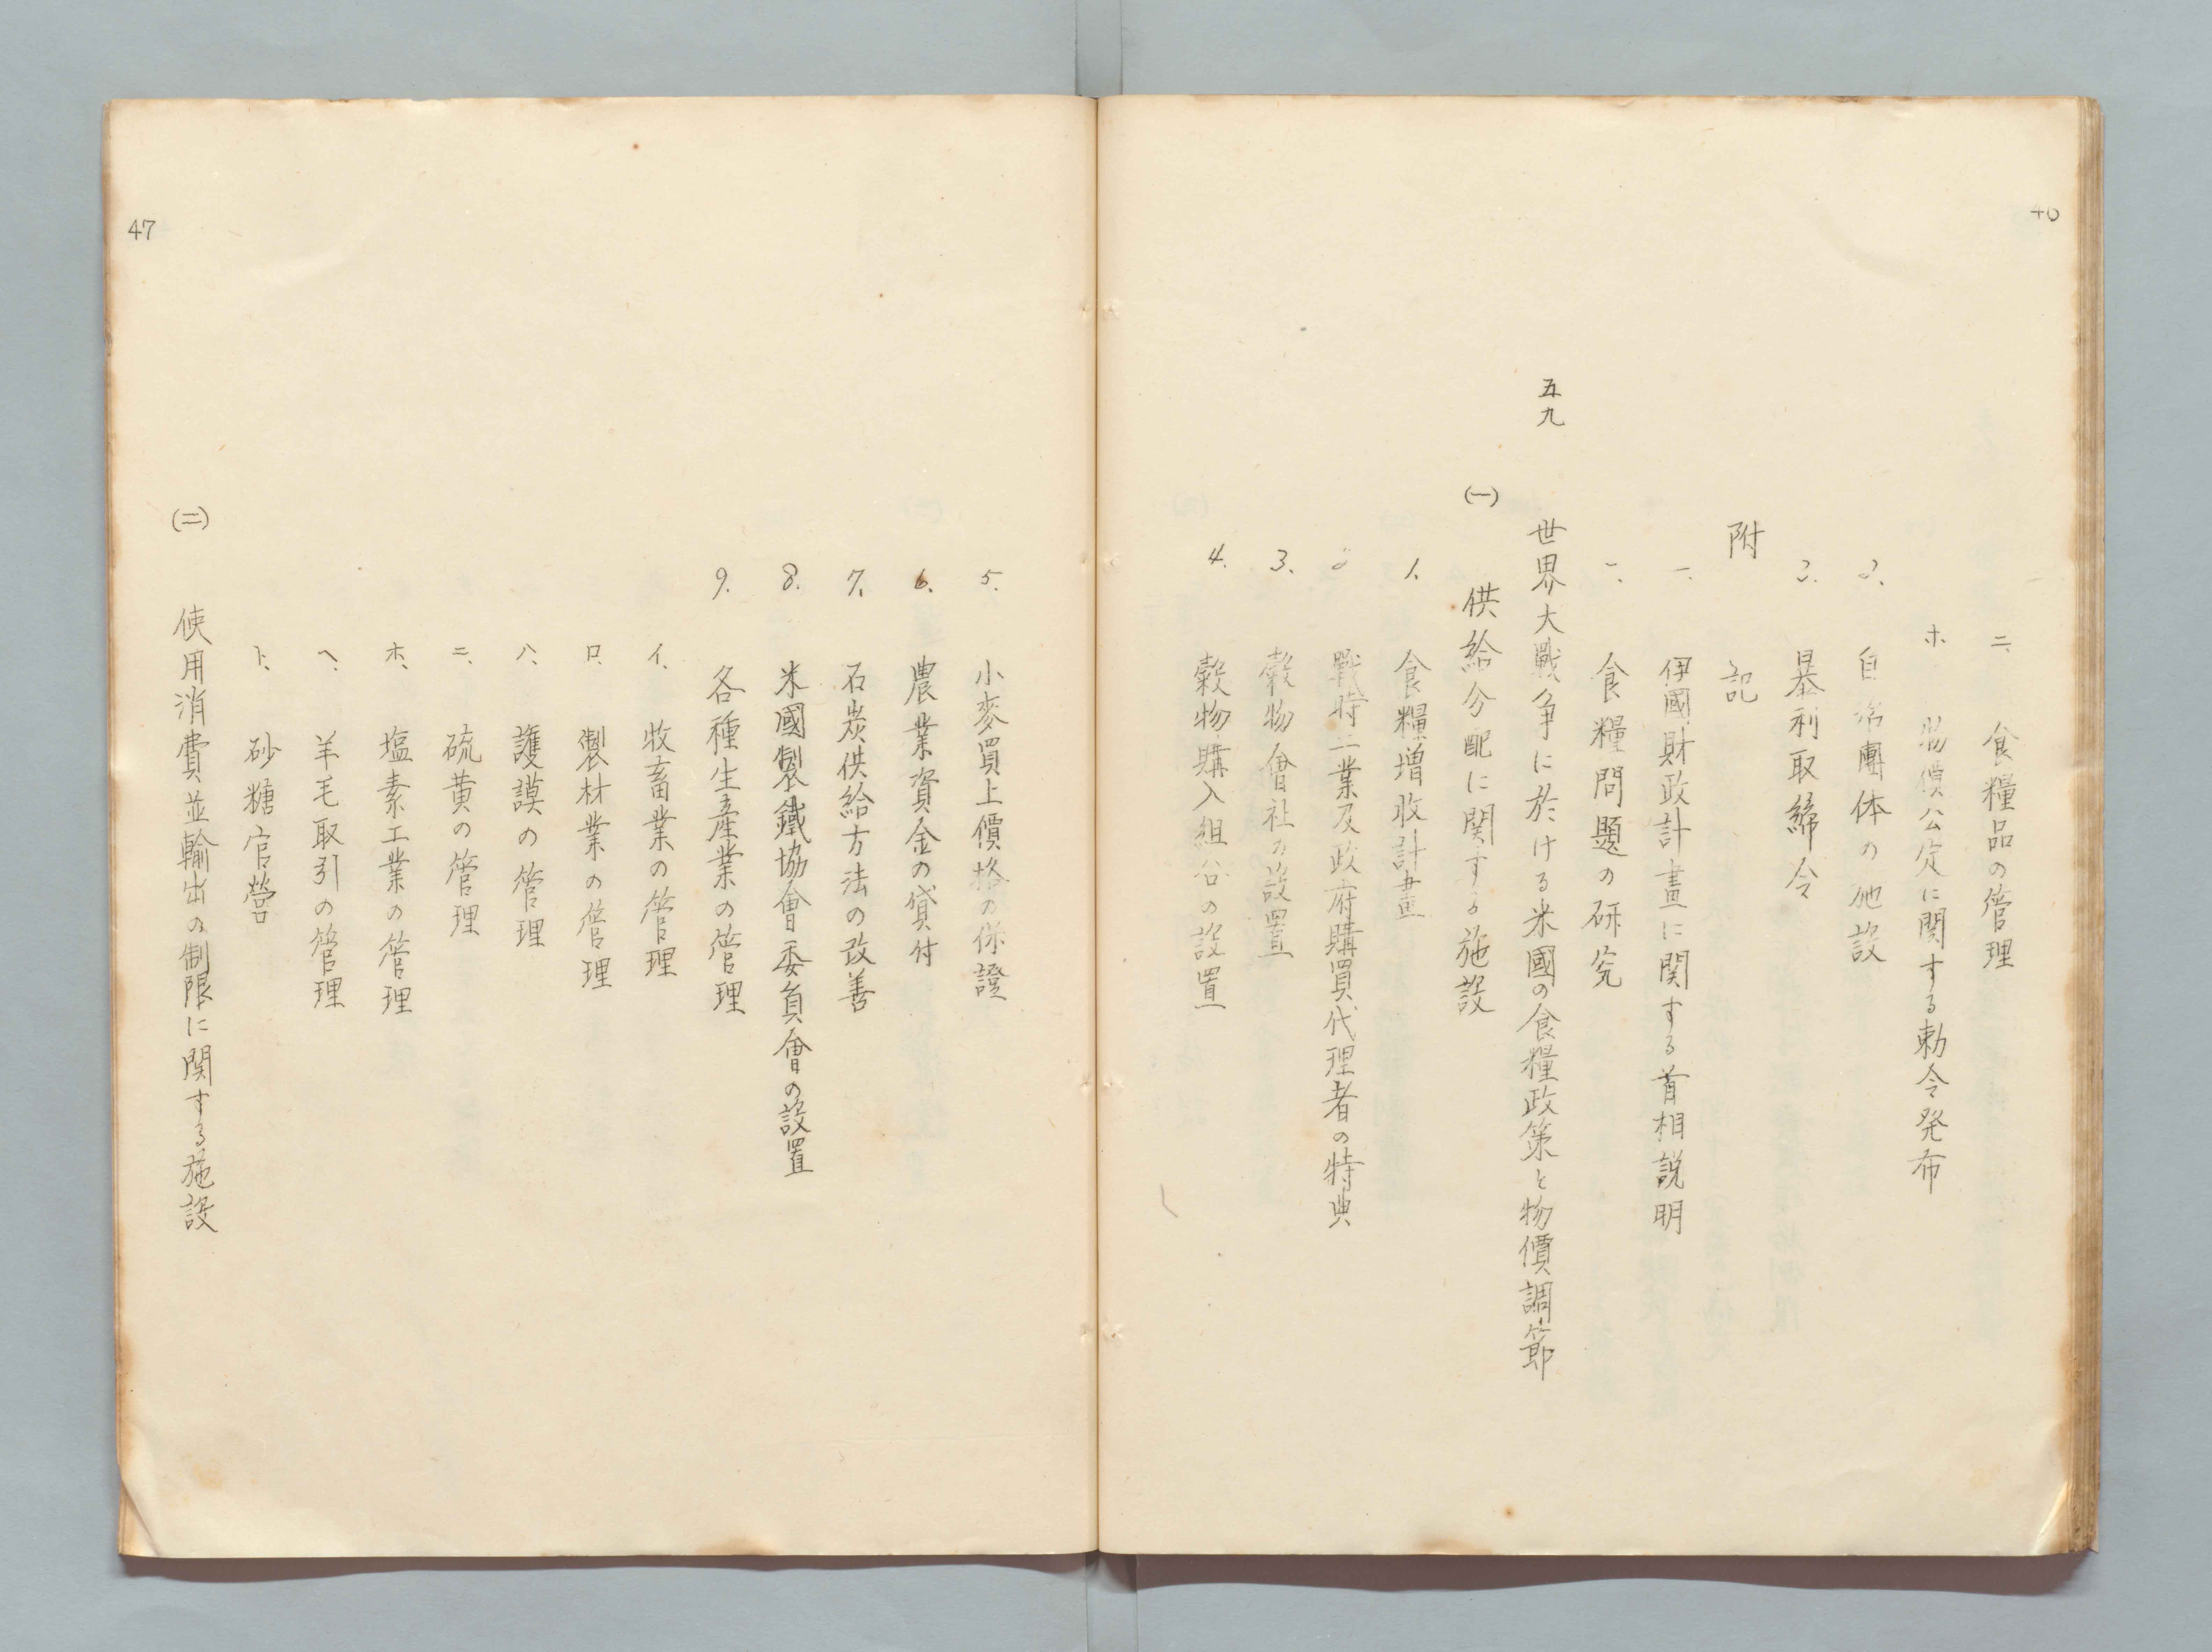 46
ニ、食糧品の管理
ホ 物價公定に関する勅令発布
2、自治團体の施設
3、暴利取締令
附記
一、伊國財政計畫に関する首相説明
一、食糧問題の研究
五九 世界大戰争に於ける米國の食糧政策と物價調節
(一) 供給分配に関する施設
1、食糧増收計畫
2 戰時工業及政府購買代理者の特典
3、穀物會社の設置
4、穀物購入組合の設置
47
5、小麥買上價格の保證
6、農業資金の貸付
7、石炭供給方法の改善
8、米國製鐵協會委員會の設置
9、各種生産業の管理
イ、牧畜業の管理
ロ、製材業の管理
ハ、護謨の管理
ニ、硫黄の管理
ホ、塩素工業の管理
ヘ、羊毛取引の管理
ト、砂糖官營
(二) 使用消費並輸出の制限に関する施設